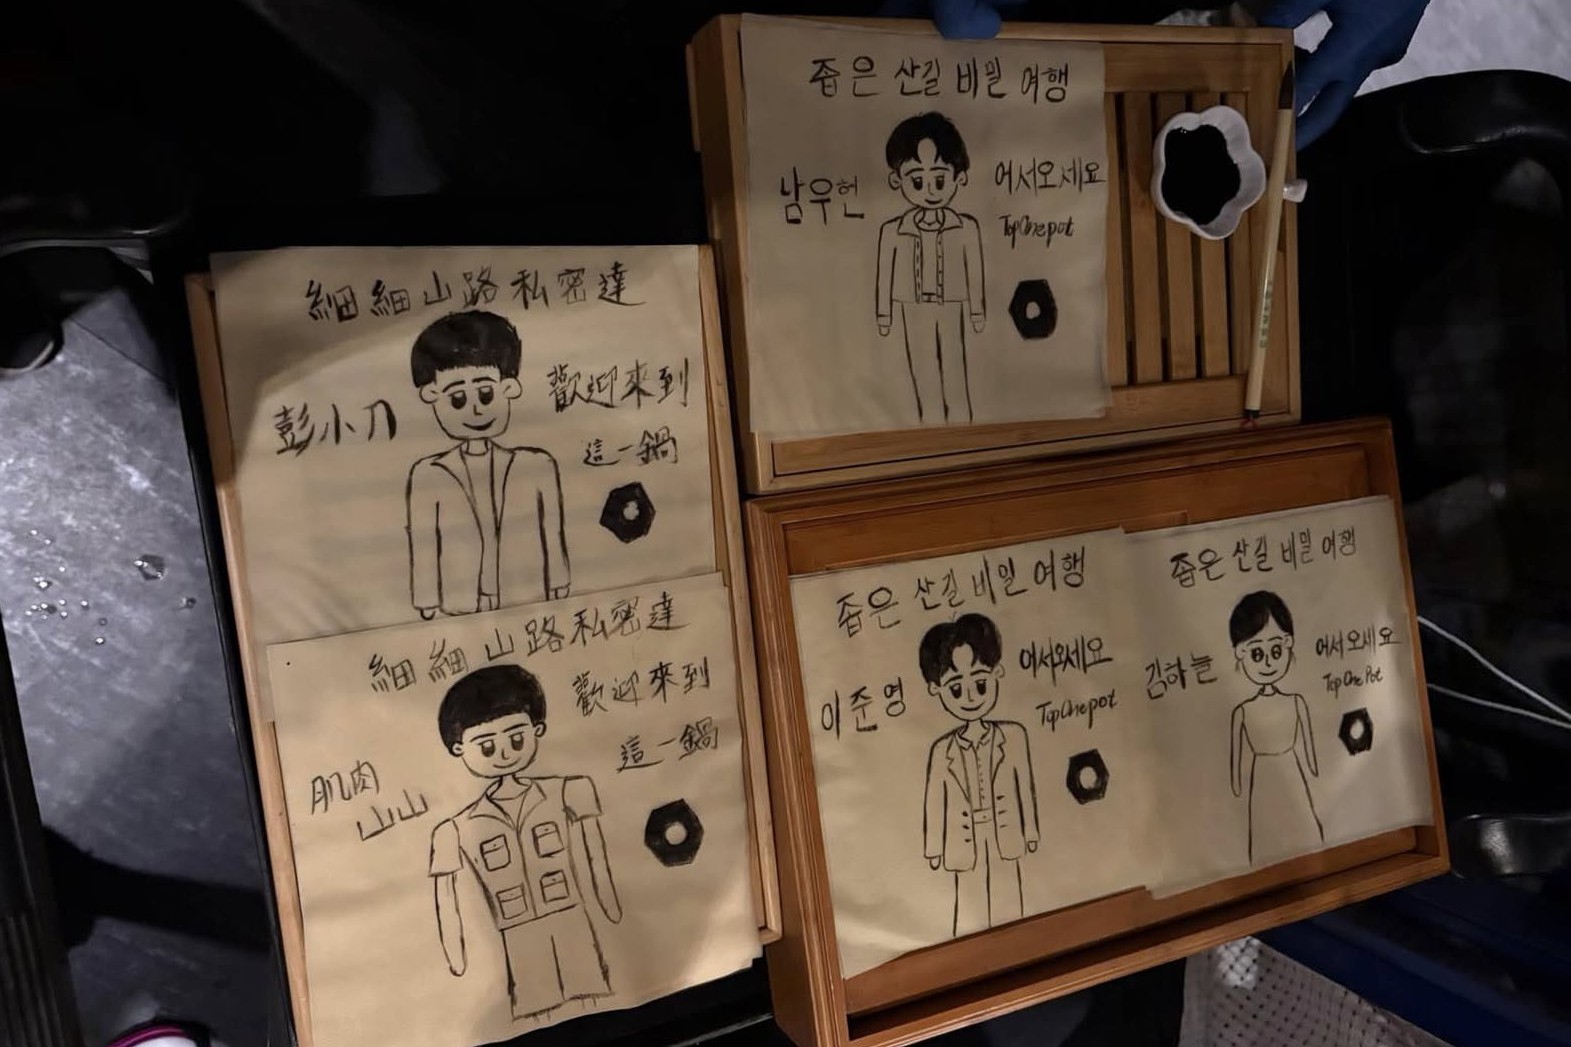 좁은 산길 비밀 여행
남우현
어서오세요
TopOnepot
細細山路私密達
彭小刀
歡迎來到
這一鍋
細細山路私密達
肌肉
山山
歡迎來到
這一鍋
좁은 산길 비밀 여행
이준영
어서오세요
TopOnepot
좁은 산길 비밀 여행
김하늘
어서오세요
TopOnePot